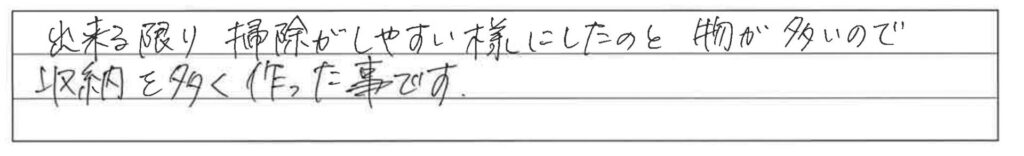 出来る限り 掃除がしやすい様にしたのと 物が多いので
収納を多く作った事です.